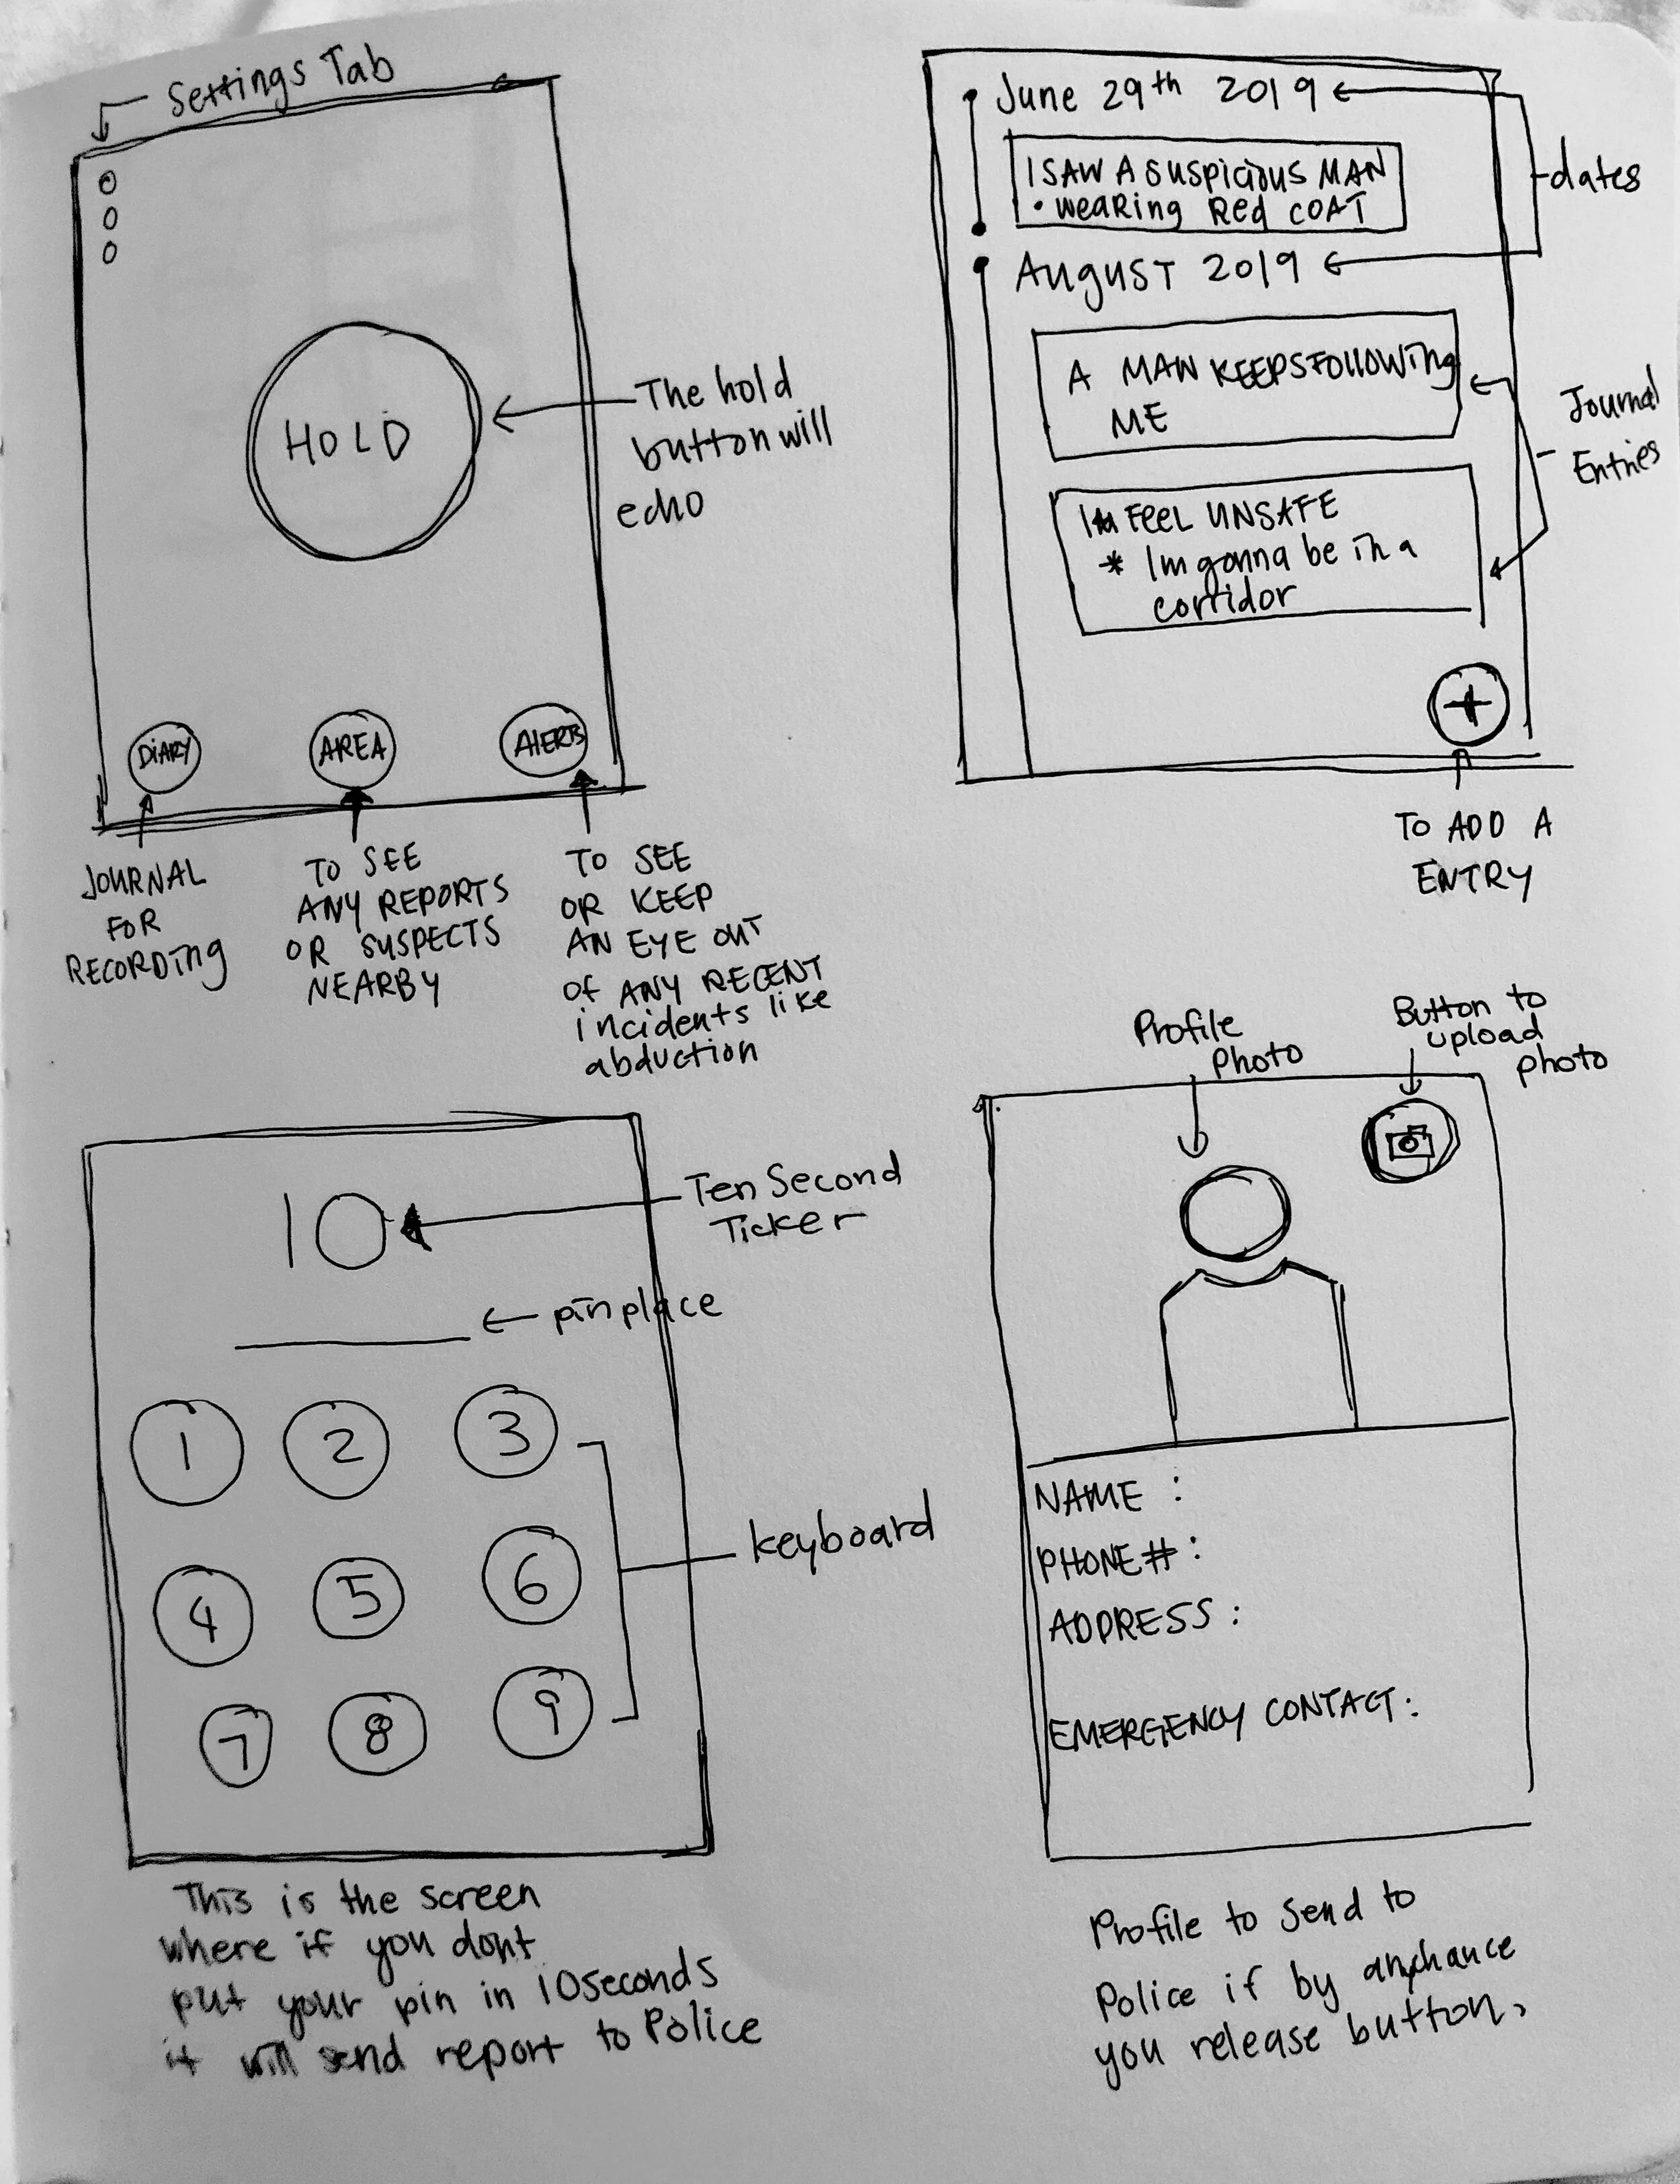 Settings Tab
HOLD
The hold
button will
echo
DiARY
AREA
AlERTS
JOURNAL
FOR
RECORDing
TO SEE
ANY REPORTS
OR SUSPECTS
NEARBY
TO SEE
OR KEEP
AN EYE OUT
Of ANY RECENT
incidents like
abduction
June 29th 2019
dates
I SAW A suspicious MAN
• weaRing Red COAT
AuguST 2019
A MAN KEEPS FOllOWing
ME
Journal
Entries
FeeL UNSAFE
* Im gonna be in a
corridor
+
TO ADD A
ENTRY
10
Ten Second
Ticker
pin place
1 2 3
4 5 6
7 8 9
keyboard
This is the screen
where if you dont
put your pin in 10 seconds
it will send report to Police
Profile
Photo
Button to
upload
photo
NAME :
PHONE# :
ADDRESS :
EMERGENCY CONTACT:
Profile to Send to
Police if by anychance
you release button,